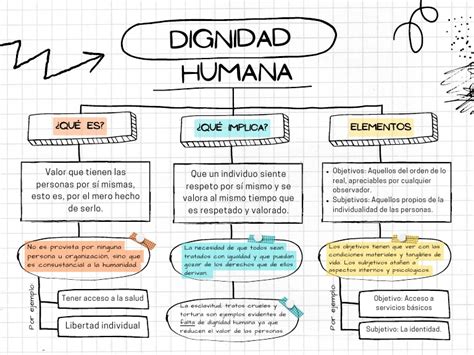 DIGNIDAD
HUMANA
¿QUÉ ES?
Valor que tienen las
personas por sí mismas,
esto es, por el mero hecho
de serlo.
No es provista por ninguna
persona u organización, sino que
es consustancial a la humanidad.
Por ejemplo:
Tener acceso a la salud
Libertad individual
¿QUÉ IMPLICA?
Que un individuo siente
respeto por sí mismo y se
valora al mismo tiempo que
es respetado y valorado.
La necesidad de que todos sean
tratados con igualdad y que puedan
gozar de los derechos que de ellos
derivan.
La esclavitud, tratos crueles y
tortura son ejemplos evidentes de
falta de dignidad humana ya que
reducen el valor de las personas
ELEMENTOS
Objetivos: Aquellos del orden de lo
real, apreciables por cualquier
observador.
Subjetivos: Aquellos propios de la
individualidad de las personas.
Los objetivos tienen que ver con las
condiciones materiales y tangibles de
vida. Los subjetivos atañen a
aspectos internos y psicológicos
Por ejemplo:
Objetivo: Acceso a
servicios básicos
Subjetivo: La identidad.